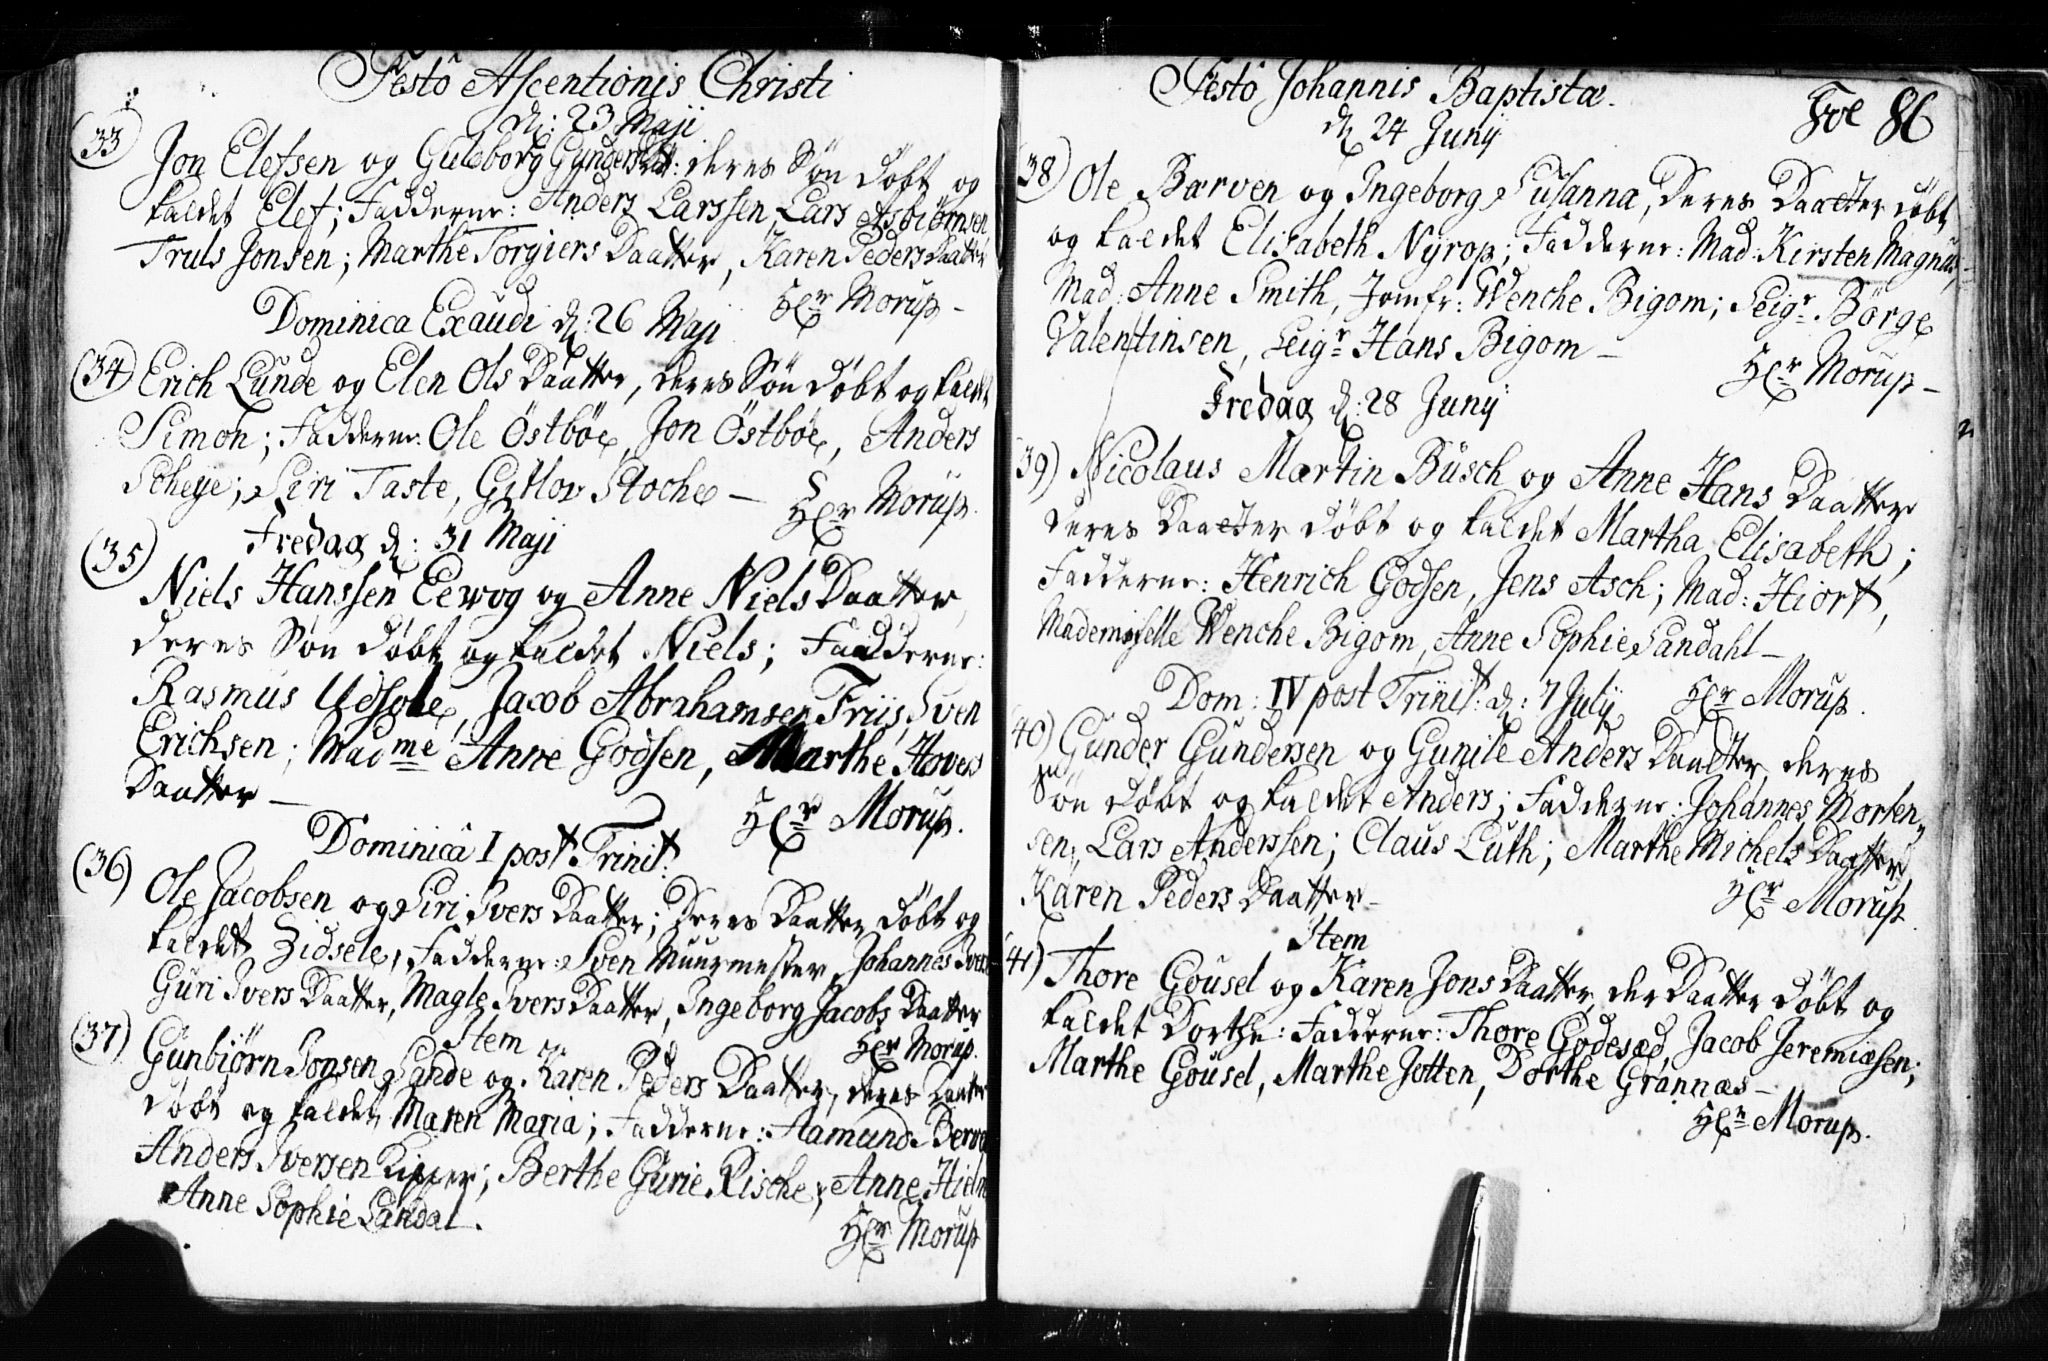 Festô Ascentionis Christi
d: 23 Maji
33 Jon Elefsen og Guleborg Gundersdtr: deres Søn døbt og
kaldet Elef; Fadderne: Anders Larssen, Lars Asbiørnsen
Truls Jonsen; Marthe Torgiers Daatter, Karen Peders Daatter
Hr Morup –
Dominica Exaudi d: 26 Maji
34 Erich Lunde og Elen Ols Daatter, deres Søn døbt og kaldt
Simon; Fadderne: Ole Östböe, Jon Östböe, Anders
Scheye; Siri Taste, Gitlov Stoche –
Hr Morup.
Fredag d: 31 Maji
35 Niels Hanssen Eewog og Anne Niels Daatter,
deres Søn døbt og kaldet Niels; Fadderne:
Rasmus Udsole, Jacob Abrahamsen Friis, Sven
Erichsen; Madme Anne Godsen, Marthe Hovers
Daatter –
Hr Morup.
Dominicâ I post Trinit:
36) Ole Jacobsen og Siri Ivers Daatter; deres Daatter døbt og
kaldet Zidsele, Fadderne: Sven Muurmester, Johannes Ivers
Guri Ivers Daatter, Magle Ivers Daatter, Ingeborg Jacobs Daatter
Hr Morup.
Item
37) Gunbjørn Jonsen Sande og Karen Peders Daatter, deres Daatter
døbt og kaldet Maren Maria; Fadderne: Aamund Berve
Anders Iversen Kipper; Berthe Gurie Rische, Anne Hielm
Anne Sophie Sandal.
Hr Morup
Festô Johannis Baptistæ.
Foe 86
d 24 Junij
38) Ole Bærven og Ingeborg Susanna, deres Daatter døbt
og kaldet Elisabeth Nyrop; Fadderne: Mad: Kirsten Magnus,
Mad: Anne Smith, Jomfr: Wenche Bigom; Seigr Börge
Valentinsen, Seigr Hans Bigom –
Hr Morup –
Fredag d: 28 Junij
39) Nicolaus Martin Büsch og Anne Hans Daatter
deres Daatter døbt og kaldet Martha Elisabeth;
Fadderne: Henrich Godsen, Jens Asch; Mad: Hiort,
Mademoiselle Wenche Bigom, Anne Sophie Sandahl –
Hr Morup.
Dom: IV post Trinit: d: 7 Julij
40) Gunder Gundersen og Gunile Anders Daatter, deres
Søn døbt og kaldet Anders; Fadderne: Johannes Morten„
sen, Lars Anderssen; Claus Luth; Marthe Michels Daatter
Karen Peders Daatter –
Hr Morup
Item
41) Thore Gousel og Karen Jons Daatter, der Daatter døbt og
kaldet Dorthe: Fadderne: Thore Godesæd, Jacob Jeremiæsen;
Marthe Gousel, Marthe Jotten, Dorthe Grannæs –
Hr Morup.